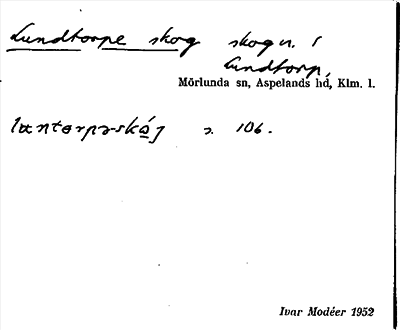 Lundtorpe skog skogn. i
Lundtorp,
Mörlunda sn, Aspelands hd, Klm. l.
s. 106.
Ivar Modéer 1952